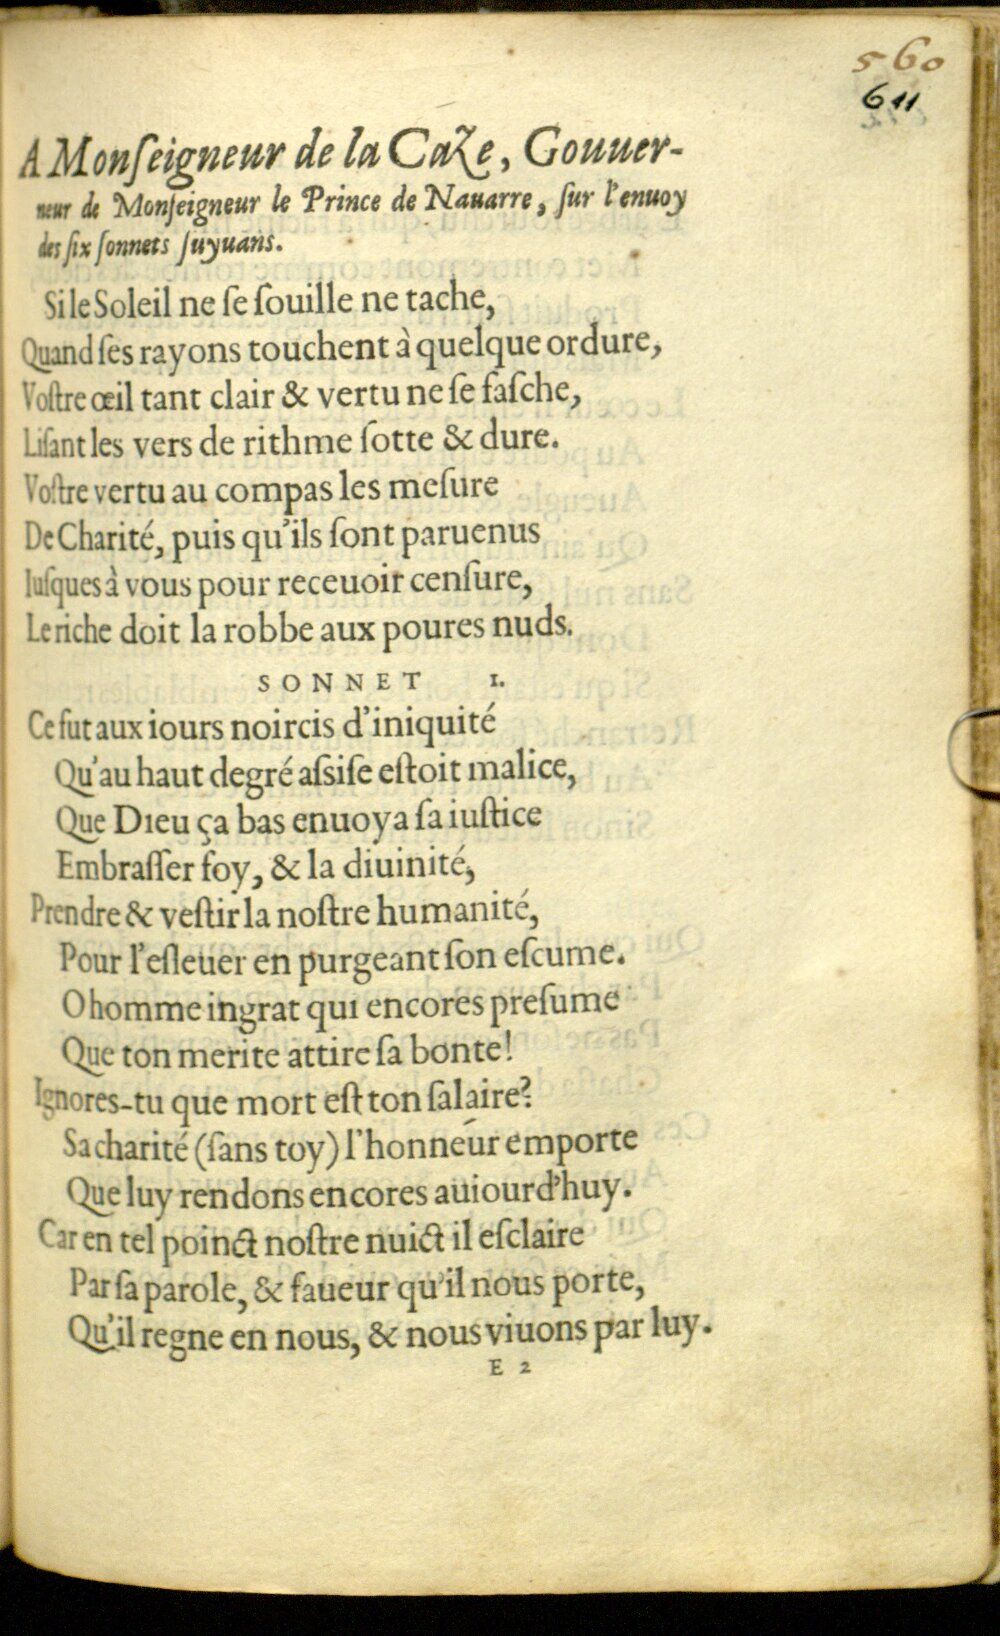 560
611
A Monſeigneur de la Caze, Gouuer-
neur de Monſeigneur le Prince de Nauarre, ſur l'enuoy
des ſix ſonnets ſuyuans.
Si le Soleil ne ſe ſouille ne tache,
Quand ſes rayons touchent à quelque ordure,
Voſtre œil tant clair & vertu ne ſe faſche,
Liſant les vers de rithme ſotte & dure.
Voſtre vertu au compas les meſure
De Charité, puis qu'ils ſont paruenus
Iuſques à vous pour receuoir cenſure,
Le riche doit la robbe aux poures nuds.
SONNET I.
Ce fut aux iours noircis d'iniquité
Qu'au haut degré aſsiſe eſtoit malice,
Que Dieu ça bas enuoya ſa iuſtice
Embraſſer foy, & la diuinité,
Prendre & veſtir la noſtre humanité,
Pour l'eſleuer en purgeant ſon eſcume.
O homme ingrat qui encores preſume
Que ton merite attire ſa bonte!
Ignores-tu que mort eſt ton ſalaire?
Sa charité (ſans toy) l'honneur emporte
Que luy rendons encores auiourd'huy.
Car en tel poinct noſtre nuict il eſclaire
Par ſa parole, & faueur qu'il nous porte,
Qu'il regne en nous, & nous viuons par luy.
E 2